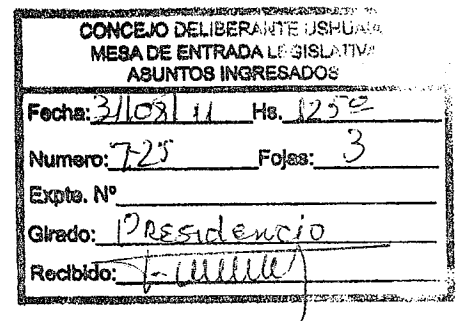 CONCEJO DELIBERANTE USHUAIA
MESA DE ENTRADA LEGISLATIVA
ASUNTOS INGRESADOS
Fecha: 31/08/11 Hs. 12 50
Numero: 725 Fojas: 3
Expte. Nº
Girado: Presidencio
Recibido: